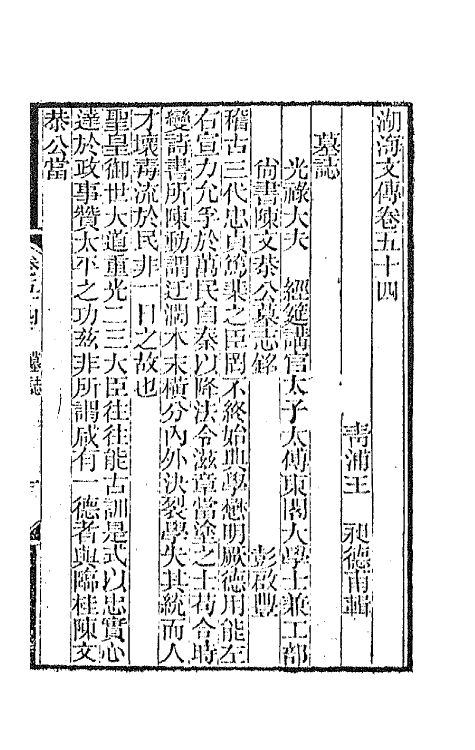 湖海文傳卷五十四
青浦王　昶德甫輯
墓誌
光祿大夫　經筵講官太子太傅東閣大學士兼工部
尙書陳文恭公墓志銘
彭啟豐
稽古三代忠貞篤棐之臣罔不終始典學懋明厥德用能左
右宣力允孚於萬民自秦以降法令滋章當塗之士苟合時
變詩書所陳動謂迂濶本末橫分內外決裂學失其統而人
才壞毒流於民非一日之故也
聖皇御世大道重光二三大臣往往能古訓是式以忠實心
達於政事贊太平之功茲非所謂咸有一德者與臨桂陳文
恭公當
卷五十四　墓誌